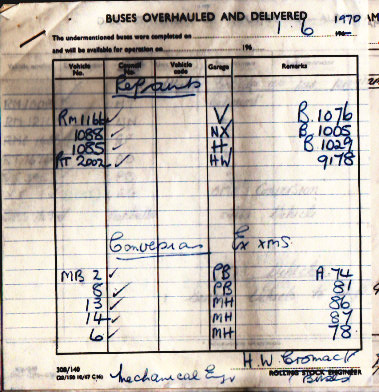 BUSES OVERHAULED AND DELIVERED
1 6 1970
The undermentioned buses were completed on 196
and will be available for operation on 196
Vehicle No. Council No. Vehicle code Garage Remarks
Repaints
RM 1166 ✓ V B. 1076
1088 ✓ NX B. 1005
1085 ✓ H B 1029
RT 2002 ✓ HW 9178
Conversions Ex XMS
MB 2 ✓ PB A 74
8 ✓ PB 81
13 ✓ MH 86
14 ✓ MH 87
6 ✓ MH 78
H W Cromack
308/140 ROLLING STOCK ENGINEER
Mechanical Eng Buses